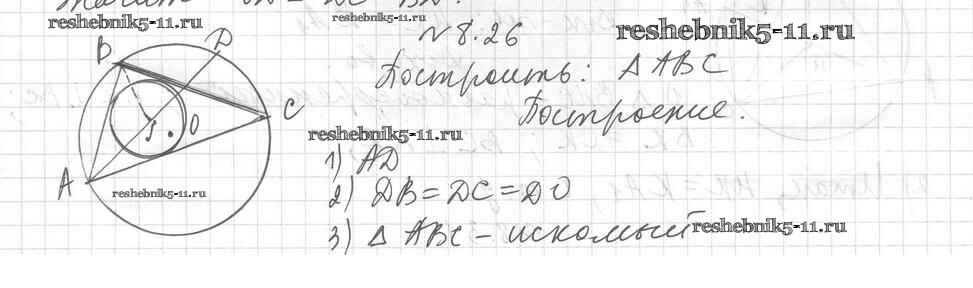 reshebnik5-11.ru
reshebnik5-11.ru
N 8.26
reshebnik5-11.ru
Построить: Δ ABC
Построение.
B
D
C
J
O
A
reshebnik5-11.ru
reshebnik5-11.ru
1) AD
2) DB = DC = DO
3) Δ ABC - искомый
reshebnik5-11.ru